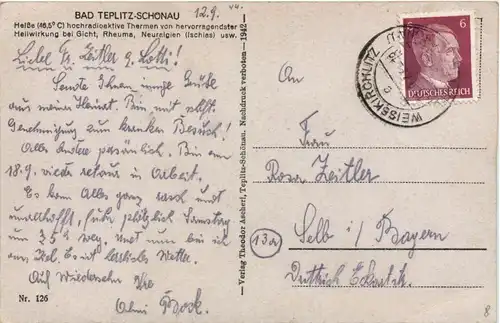 BAD TEPLITZ-SCHÖNAU
12.9. 44.
Heiße (46,5°C) hochradioaktive Thermen von hervorragendster
Heilwirkung bei Gicht, Rheuma, Neuralgien (Ischias) usw.
Liebe Fr. Zeitler u. Lotti!
Sende Ihnen innige Grüße
aus meiner Heimat. Bin mit
Genehmigung zum kranken Besuch!
Alles andere persönlich. Bin am
18.9. wieder retour in Arbeit.
Es kam Alles ganz rasch und
unverhofft, fuhr plötzlich Samstag
um weg. Und nun bin ich
am Ziel. Es ist herrliches Wetter.
Auf Wiedersehn Ihre
Bock.
Nr. 126
— Verlag Theodor Ascherl, Teplitz-Schönau. Nachdruck verboten — 1942 —
WEISSKIRCHLITZ
6
DEUTSCHES REICH
An
Frau
Rosa Zeitler
13a
Selb / Bayern
Dittrich